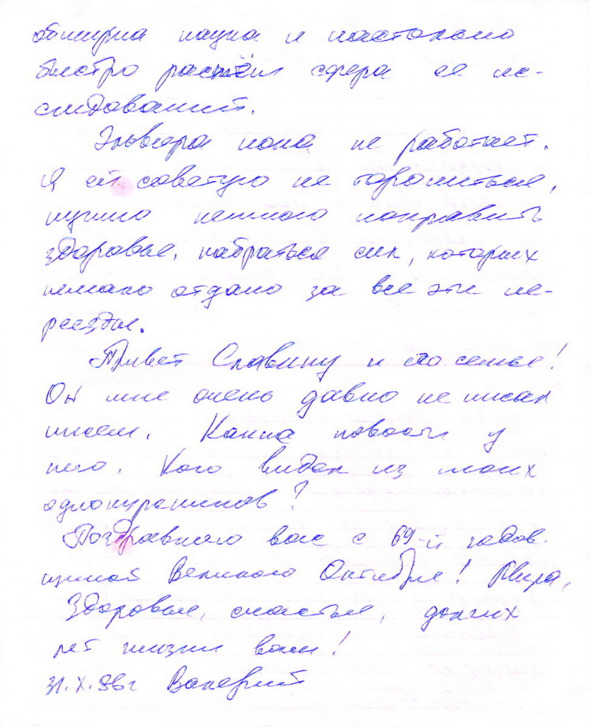 обширна наука и настолько
быстро растёт сфера ее ис-
следований.
Эльвира пока не работает.
Я ей советую не торопиться,
нужно немного поправить
здоровье, набраться сил, которых
немало отдано за все эти пе-
реезды.
Привет Славину и его семье!
Он мне очень давно не писал
писем. Какие новости у
него. Кого видел из моих
однокурсников?
Поздравляю вас с 69-й годов-
щиной Великого Октября! Мира,
Здоровья, счастья, долгих
лет жизни вам!
31.X.86г Валерий